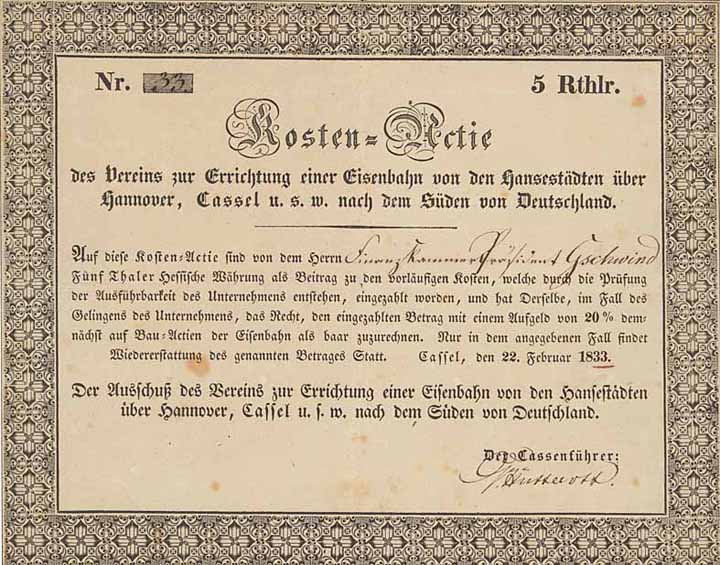 Nr. 33 5 Rthlr.
Kosten-Actie
des Vereins zur Errichtung einer Eisenbahn von den Hansestädten über
Hannover, Cassel u. s. w. nach dem Süden von Deutschland.
Auf diese Kosten-Actie sind von dem Herrn Finanzkammer Präsident Gschwind
Fünf Thaler Hessische Währung als Beitrag zu den vorläufigen Kosten, welche durch die Prüfung
der Ausführbarkeit des Unternehmens entstehen, eingezahlt worden, und hat Derselbe, im Fall des
Gelingens des Unternehmens, das Recht, den eingezahlten Betrag mit einem Aufgeld von 20% dem-
nächst auf Bau-Actien der Eisenbahn als baar zuzurechnen. Nur in dem angegebenen Fall findet
Wiedererstattung des genannten Betrages Statt. Cassel, den 22. Februar 1833.
Der Ausschuß des Vereins zur Errichtung einer Eisenbahn von den Hansestädten
über Hannover, Cassel u. s. w. nach dem Süden von Deutschland.
Der Cassenführer: